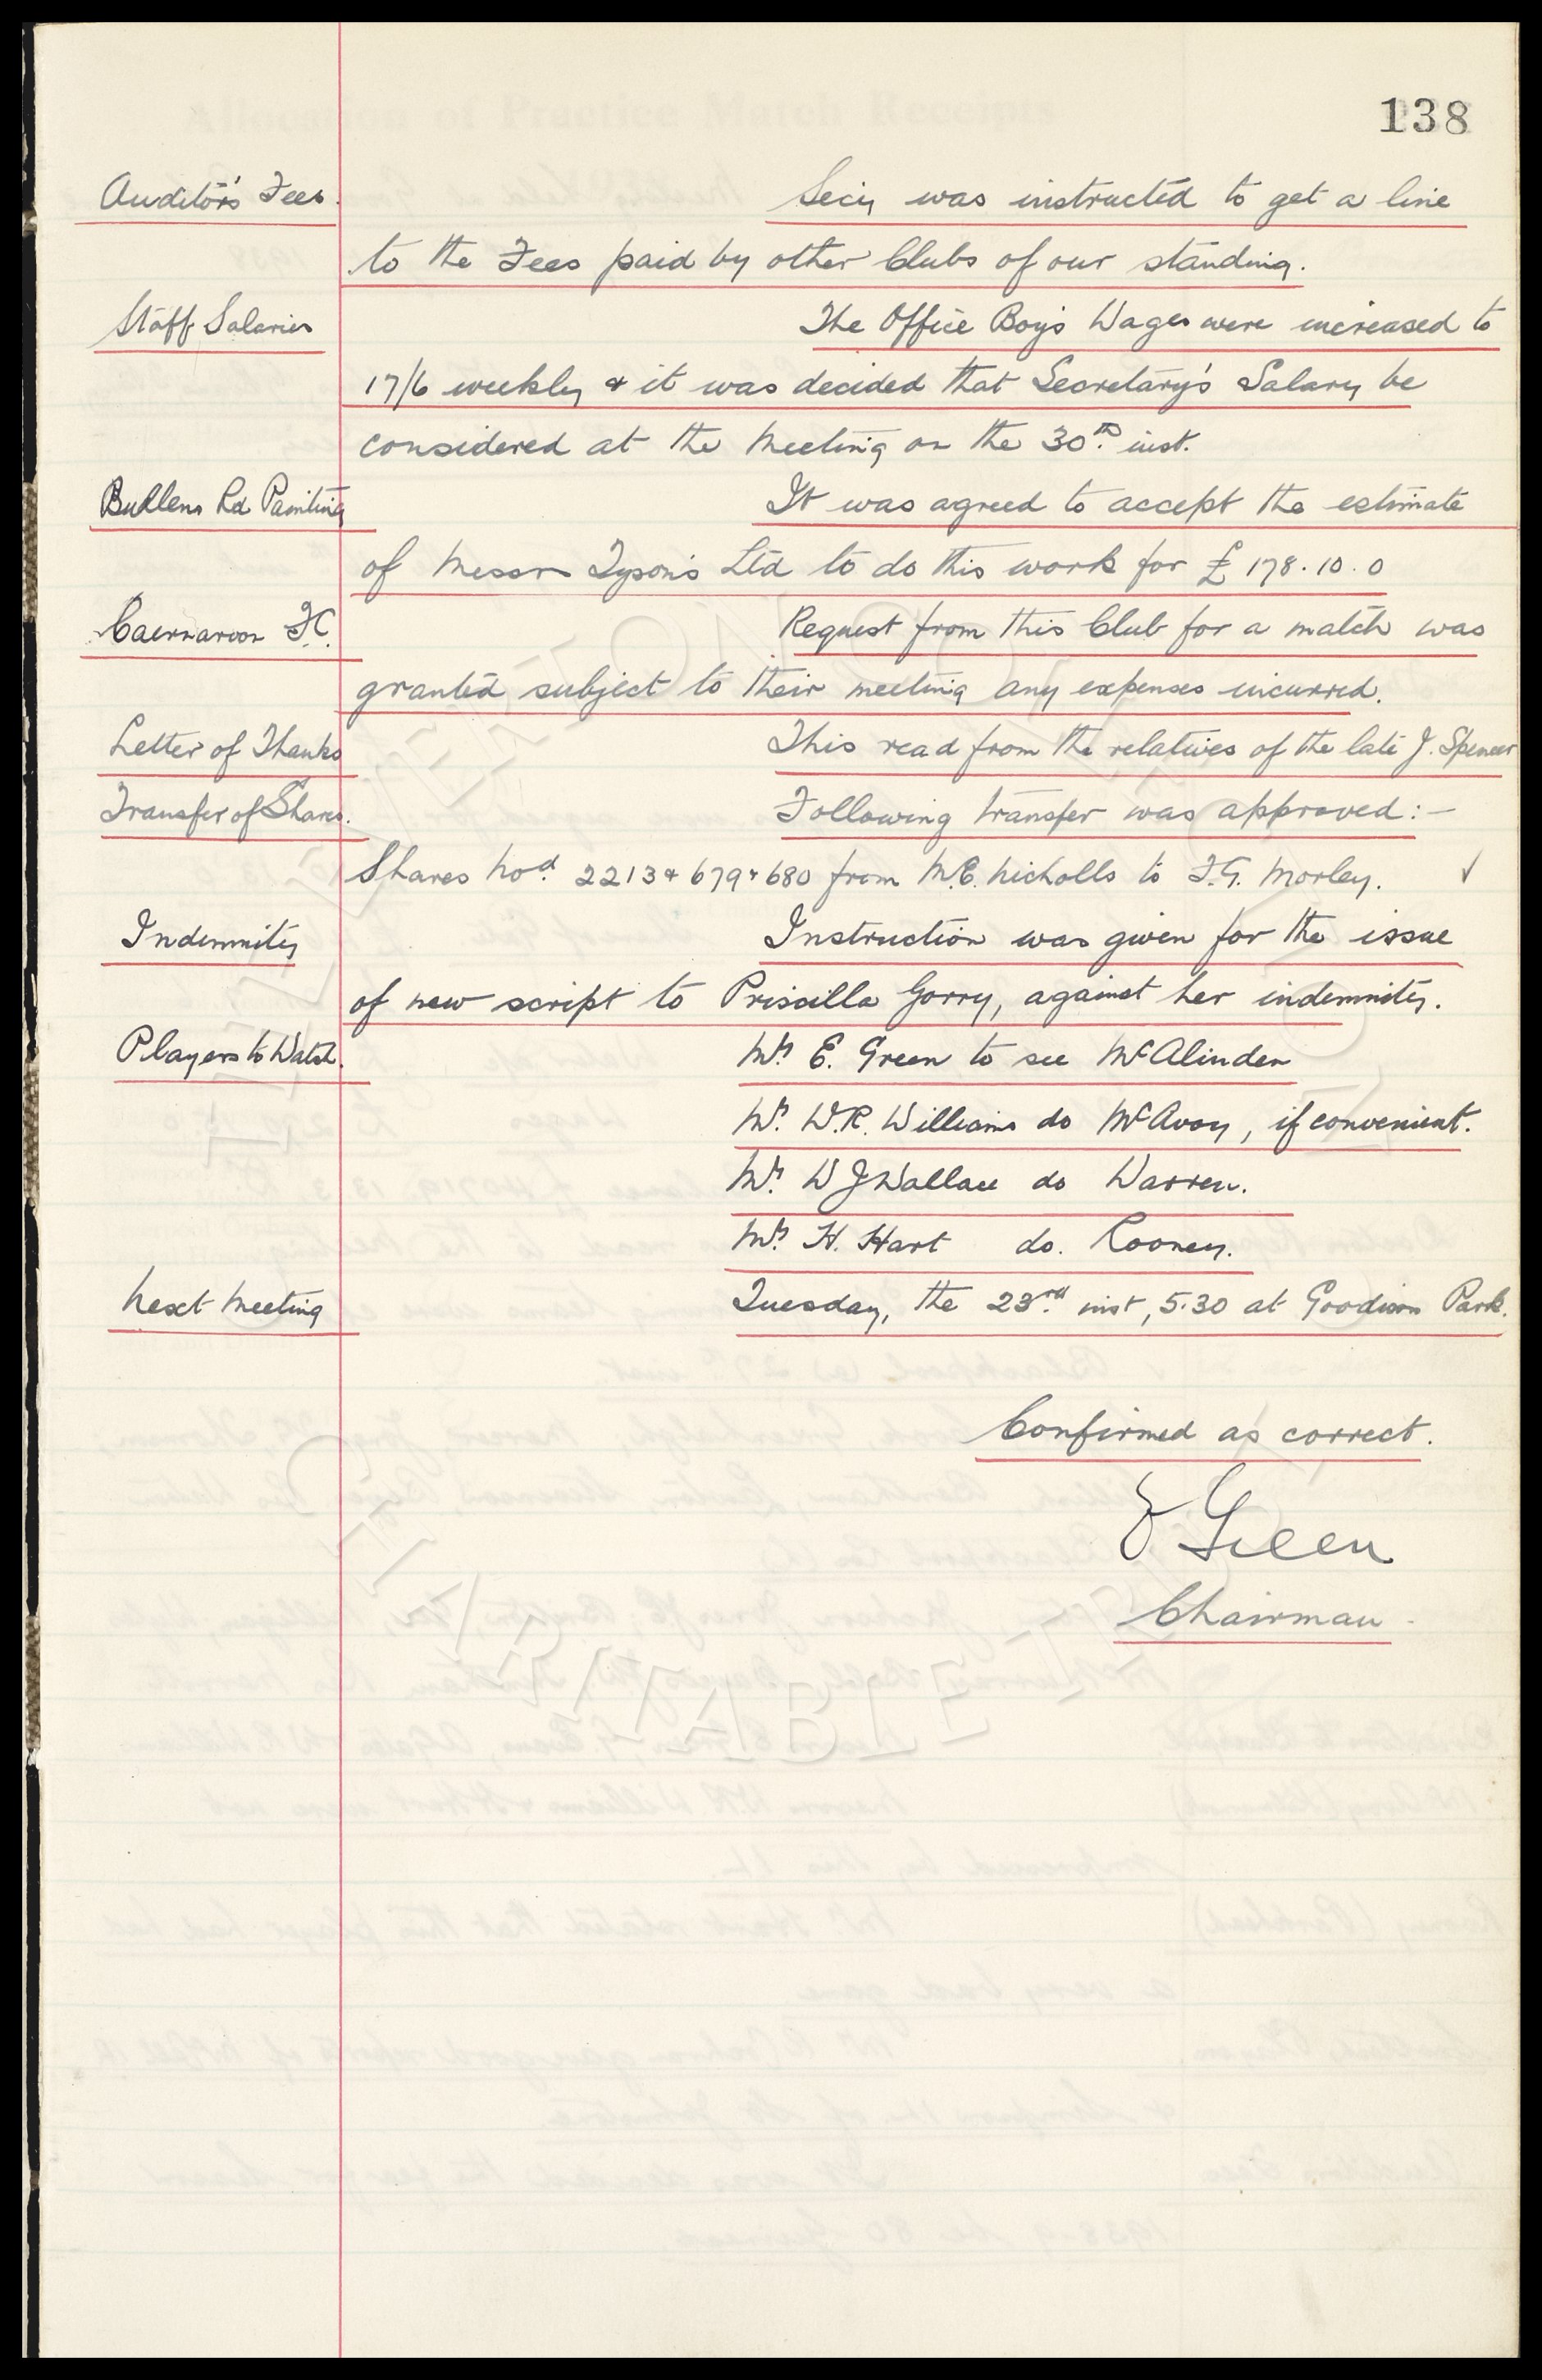 138
Auditor's Fees. Secy was instructed to get a line
to the Fees paid by other Clubs of our standing.
Staff Salaries The Office Boy's Wages were increased to
17/6 weekly & it was decided that Secretary's Salary be
considered at the Meeting on the 30th. inst.
Bullens Rd Painting It was agreed to accept the estimate
of Messrs Tyson's Ltd to do this work for £178.10.0
Caernarvon F.C. Request from this Club for a match was
granted subject to their meeting any expenses incurred.
Letter of Thanks This read from the relatives of the late J. Spencer
Transfer of Shares. Following transfer was approved:-
Shares Nod. 2213 & 679 & 680 from M.E. Nicholls to F.G. Morley. ✓
Indemnity Instruction was given for the issue
of new script to Priscilla Gorry, against her indemnity.
Players to Watch. Mr. E. Green to see McAlinden
Mr. W.R. Williams do McAvoy, if convenient.
Mr. W J Wallace do Warren.
Mr. H. Hart do. Rooney.
Next Meeting Tuesday, the 23rd. inst, 5.30 at Goodison Park.
Confirmed as correct.
E Green
Chairman